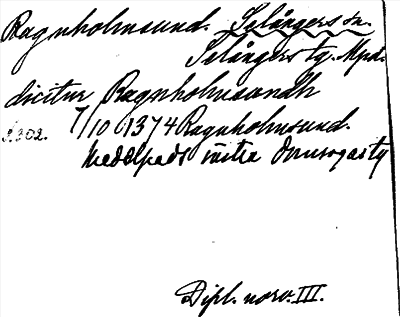 Ragnholmsund. Selångers sn.
Selångers tg. Mpd.
dicitur Ragnholmsundh
s. 302. 7/10 1374 Ragnholmsund.
Medelpads västra domsagas tg
Dipl. norv. III.